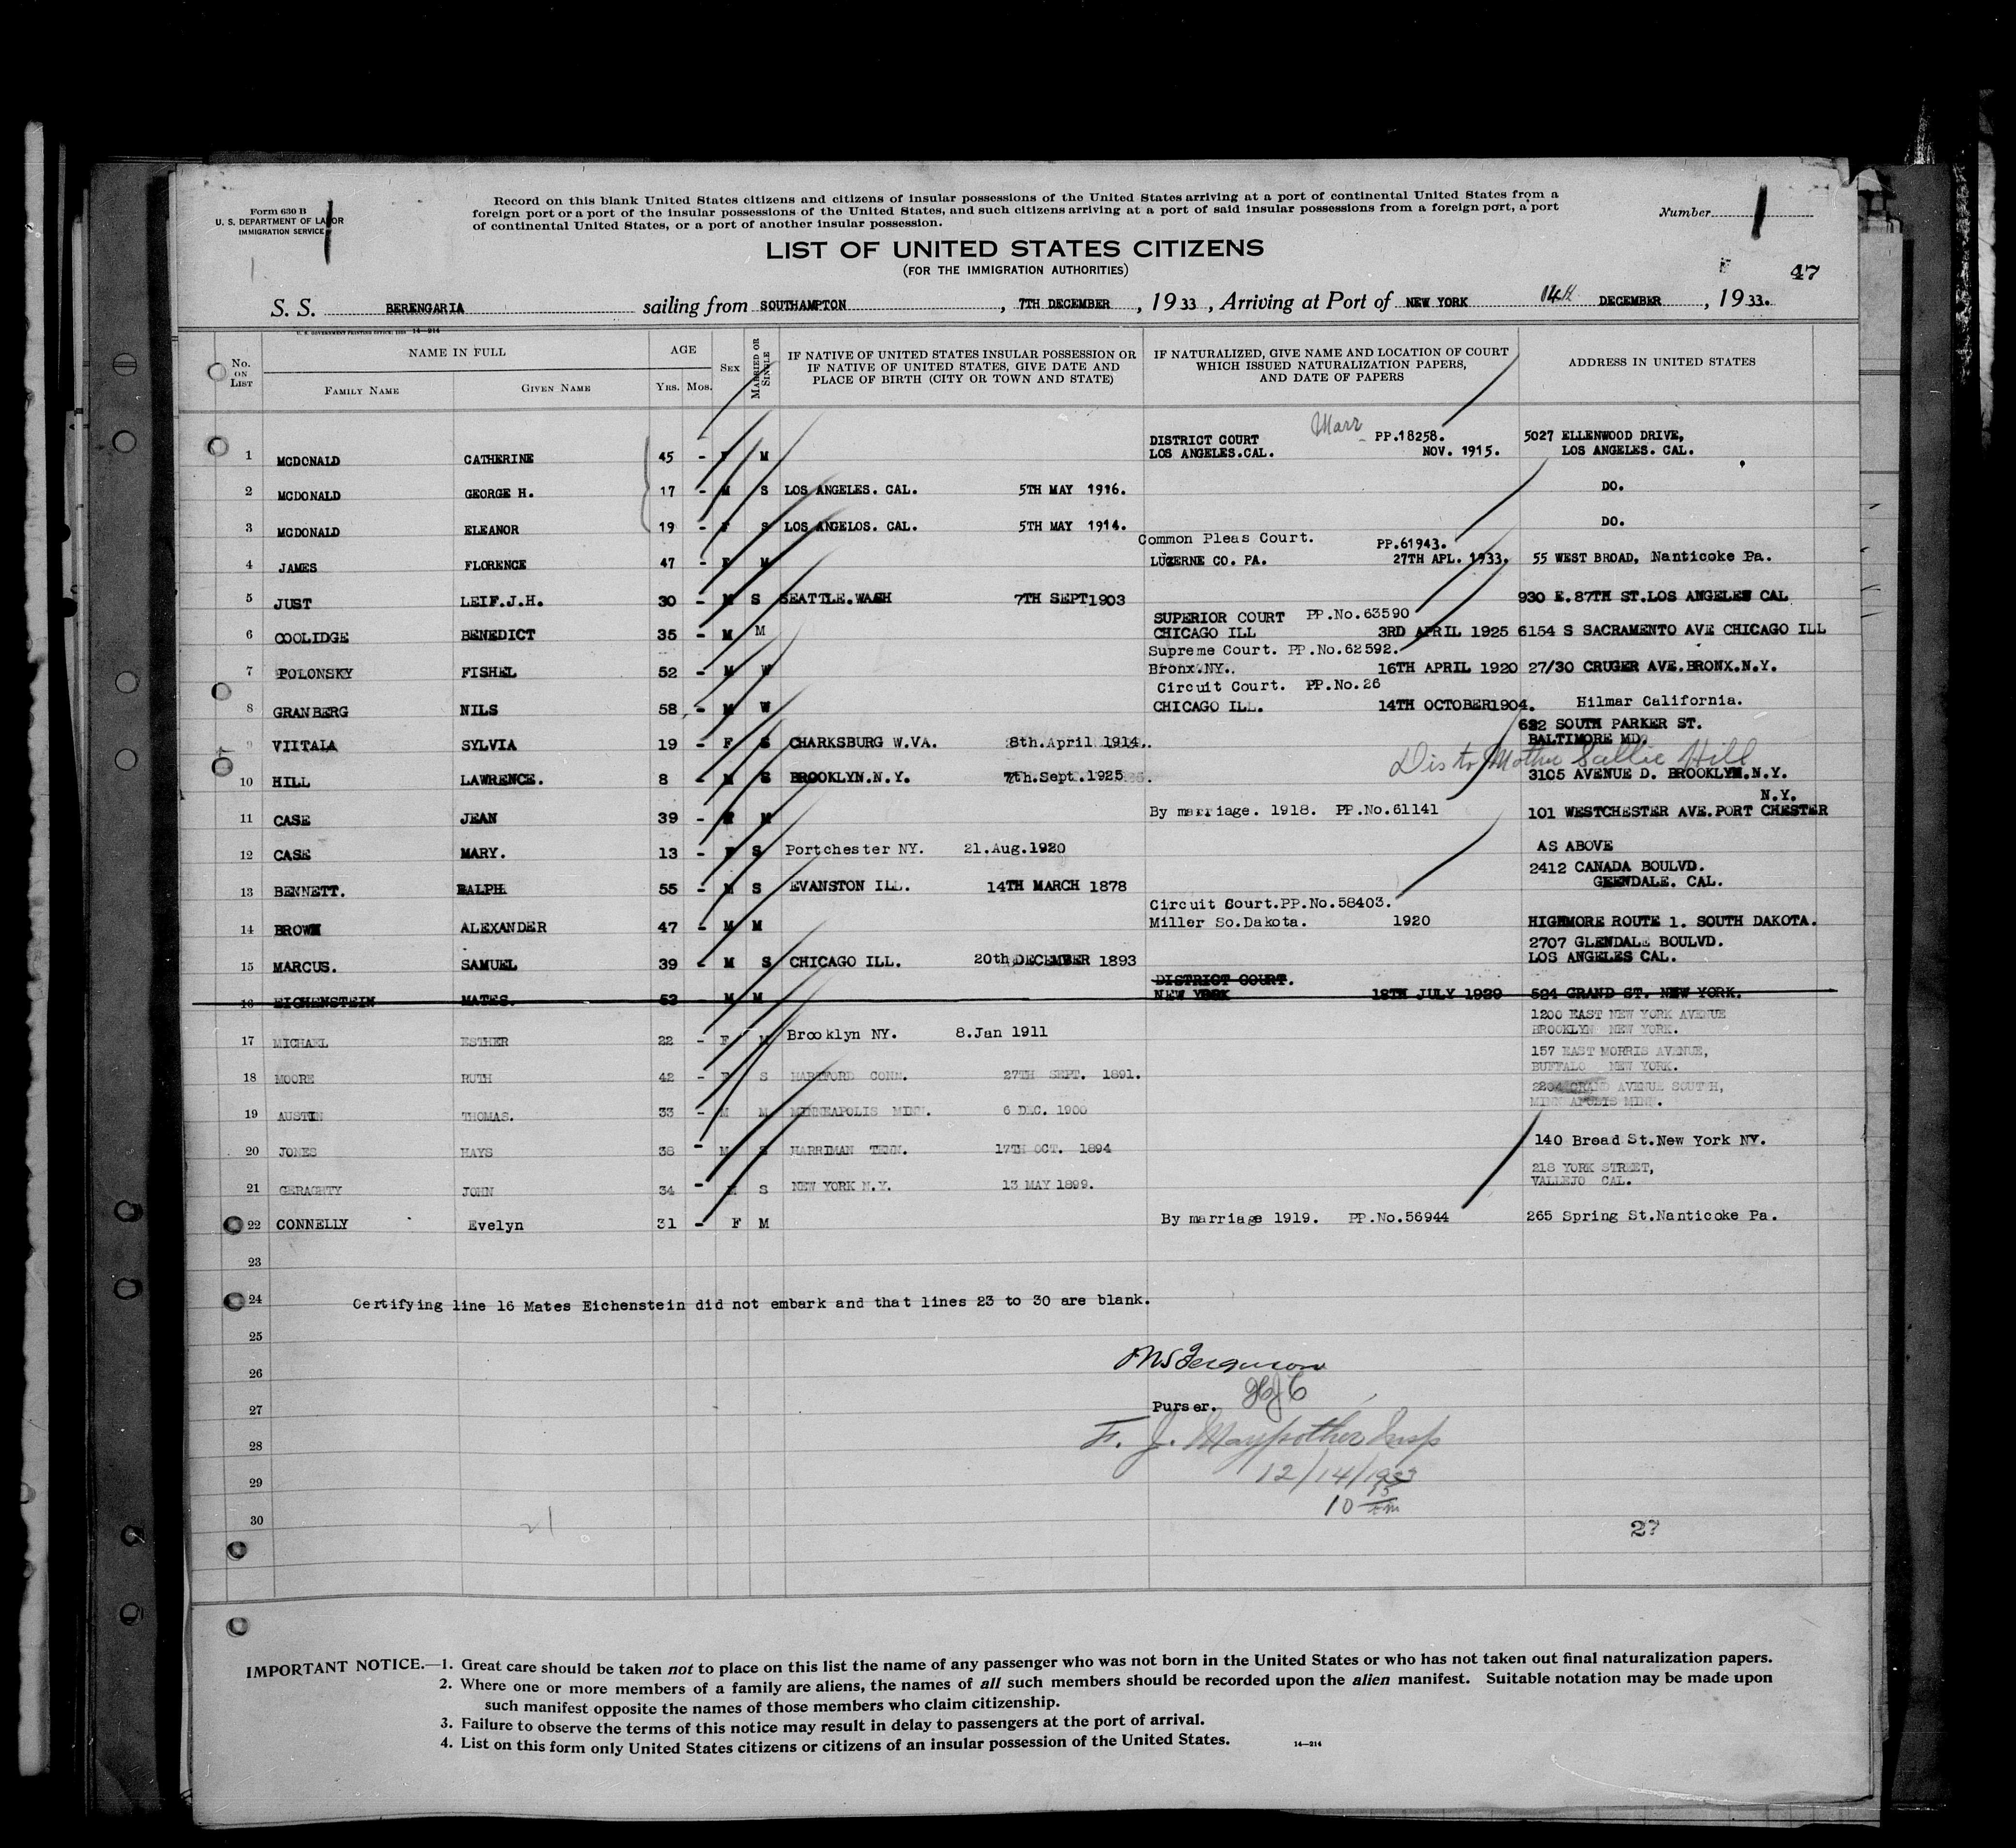 Form 630 B
U. S. DEPARTMENT OF LABOR
IMMIGRATION SERVICE
Record on this blank United States citizens and citizens of insular possessions of the United States arriving at a port of continental United States from a
foreign port or a port of the insular possessions of the United States, and such citizens arriving at a port of said insular possessions from a foreign port, a port
of continental United States, or a port of another insular possession.
Number
LIST OF UNITED STATES CITIZENS
(FOR THE IMMIGRATION AUTHORITIES)
47
S. S. BERENGARIA sailing from SOUTHAMPTON , 7TH DECEMBER , 1933 , Arriving at Port of NEW YORK 14th DECEMBER , 1933.
U. S. GOVERNMENT PRINTING OFFICE: 14—214
No. ON LIST NAME IN FULL FAMILY NAME GIVEN NAME AGE Yrs. Mos. SEX MARRIED OR SINGLE IF NATIVE OF UNITED STATES INSULAR POSSESSION OR IF NATIVE OF UNITED STATES, GIVE DATE AND PLACE OF BIRTH (CITY OR TOWN AND STATE) IF NATURALIZED, GIVE NAME AND LOCATION OF COURT WHICH ISSUED NATURALIZATION PAPERS, AND DATE OF PAPERS ADDRESS IN UNITED STATES
Marr
DISTRICT COURT PP.18258. 5027 ELLENWOOD DRIVE,
1 MCDONALD CATHERINE 45 - F M LOS ANGELES.CAL. NOV. 1915. LOS ANGELES. CAL.
2 MCDONALD GEORGE H. 17 - M S LOS ANGELES. CAL. 5TH MAY 1916. DO.
3 MCDONALD ELEANOR 19 - F S LOS ANGELOS. CAL. 5TH MAY 1914. DO.
Common Pleas Court. PP.61943.
4 JAMES FLORENCE 47 - F M LUZERNE CO. PA. 27TH APL. 1933. 55 WEST BROAD, Nanticoke Pa.
5 JUST LEIF.J.H. 30 - M S SEATTLE.WASH 7TH SEPT1903 930 E.87TH ST.LOS ANGELES CAL
SUPERIOR COURT PP.No.63590
6 COOLIDGE BENEDICT 35 - M M CHICAGO ILL 3RD APRIL 1925 6154 S SACRAMENTO AVE CHICAGO ILL
Supreme Court. PP.No.62592.
7 POLONSKY FISHEL 52 - M W Bronx.NY. 16TH APRIL 1920 27/30 CRUGER AVE.BRONX.N.Y.
Circuit Court. PP.No.26
8 GRANBERG NILS 58 - M W CHICAGO ILL. 14TH OCTOBER1904. Hilmar California.
SOUTH PARKER ST.
9 VIITALA SYLVIA 19 - F S CHARKSBURG W.VA. 8th.April 1914. BALTIMORE MD.
Dis to Mother Sallie Hill
10 HILL LAWRENCE. 8 - M S BROOKLYN.N.Y. 7th.Sept.1925 3105 AVENUE D. BROOKLYN.N.Y.
N.Y.
11 CASE JEAN 39 - F M By marriage. 1918. PP.No.61141 101 WESTCHESTER AVE.PORT CHESTER
12 CASE MARY. 13 - F S Portchester NY. 21.Aug.1920 AS ABOVE
2412 CANADA BOULVD.
13 BENNETT. RALPH 55 - M S EVANSTON ILL. 14TH MARCH 1878 GLENDALE. CAL.
Circuit Court.PP.No.58403.
14 BROWN ALEXANDER 47 - M M Miller So.Dakota. 1920 HIGHMORE ROUTE 1. SOUTH DAKOTA.
2707 GLENDALE BOULVD.
15 MARCUS. SAMUEL 39 - M S CHICAGO ILL. 20th DECEMBER 1893 LOS ANGELES CAL.
DISTRICT COURT.
16 EICHENSTEIN MATES. 53 M M NEW YORK 18TH JULY 1929 504 GRAND ST. NEW YORK.
1200 EAST NEW YORK AVENUE
17 MICHAEL ESTHER 22 - F M Brooklyn NY. 8.Jan 1911 BROOKLYN NEW YORK.
157 EAST MORRIS AVENUE,
18 MOORE RUTH 42 - F S HARTFORD CONN. 27TH SEPT. 1891. BUFFALO NEW YORK.
GRAND AVENUE SOUTH,
19 AUSTIN THOMAS. 33 - M M MINNEAPOLIS MINN. 6 DEC. 1900 MINNEAPOLIS MINN.
20 JONES HAYS 38 - M S HARRIMAN TENN. 17TH OCT. 1894 140 Broad St.New York NY.
218 YORK STREET,
21 GERAGHTY JOHN 34 - M S NEW YORK N.Y. 13 MAY 1899. VALLEJO CAL.
22 CONNELLY Evelyn 31 - F M By marriage 1919. PP.No.56944 265 Spring St.Nanticoke Pa.
23
24 Certifying line 16 Mates Eichenstein did not embark and that lines 23 to 30 are blank.
25
26
27 Purser.
28 F. J. Maypother Insp
29 12/14/1933
10 15 am
30
21
27
IMPORTANT NOTICE.—1. Great care should be taken not to place on this list the name of any passenger who was not born in the United States or who has not taken out final naturalization papers.
2. Where one or more members of a family are aliens, the names of all such members should be recorded upon the alien manifest. Suitable notation may be made upon
such manifest opposite the names of those members who claim citizenship.
3. Failure to observe the terms of this notice may result in delay to passengers at the port of arrival.
4. List on this form only United States citizens or citizens of an insular possession of the United States.
14—214